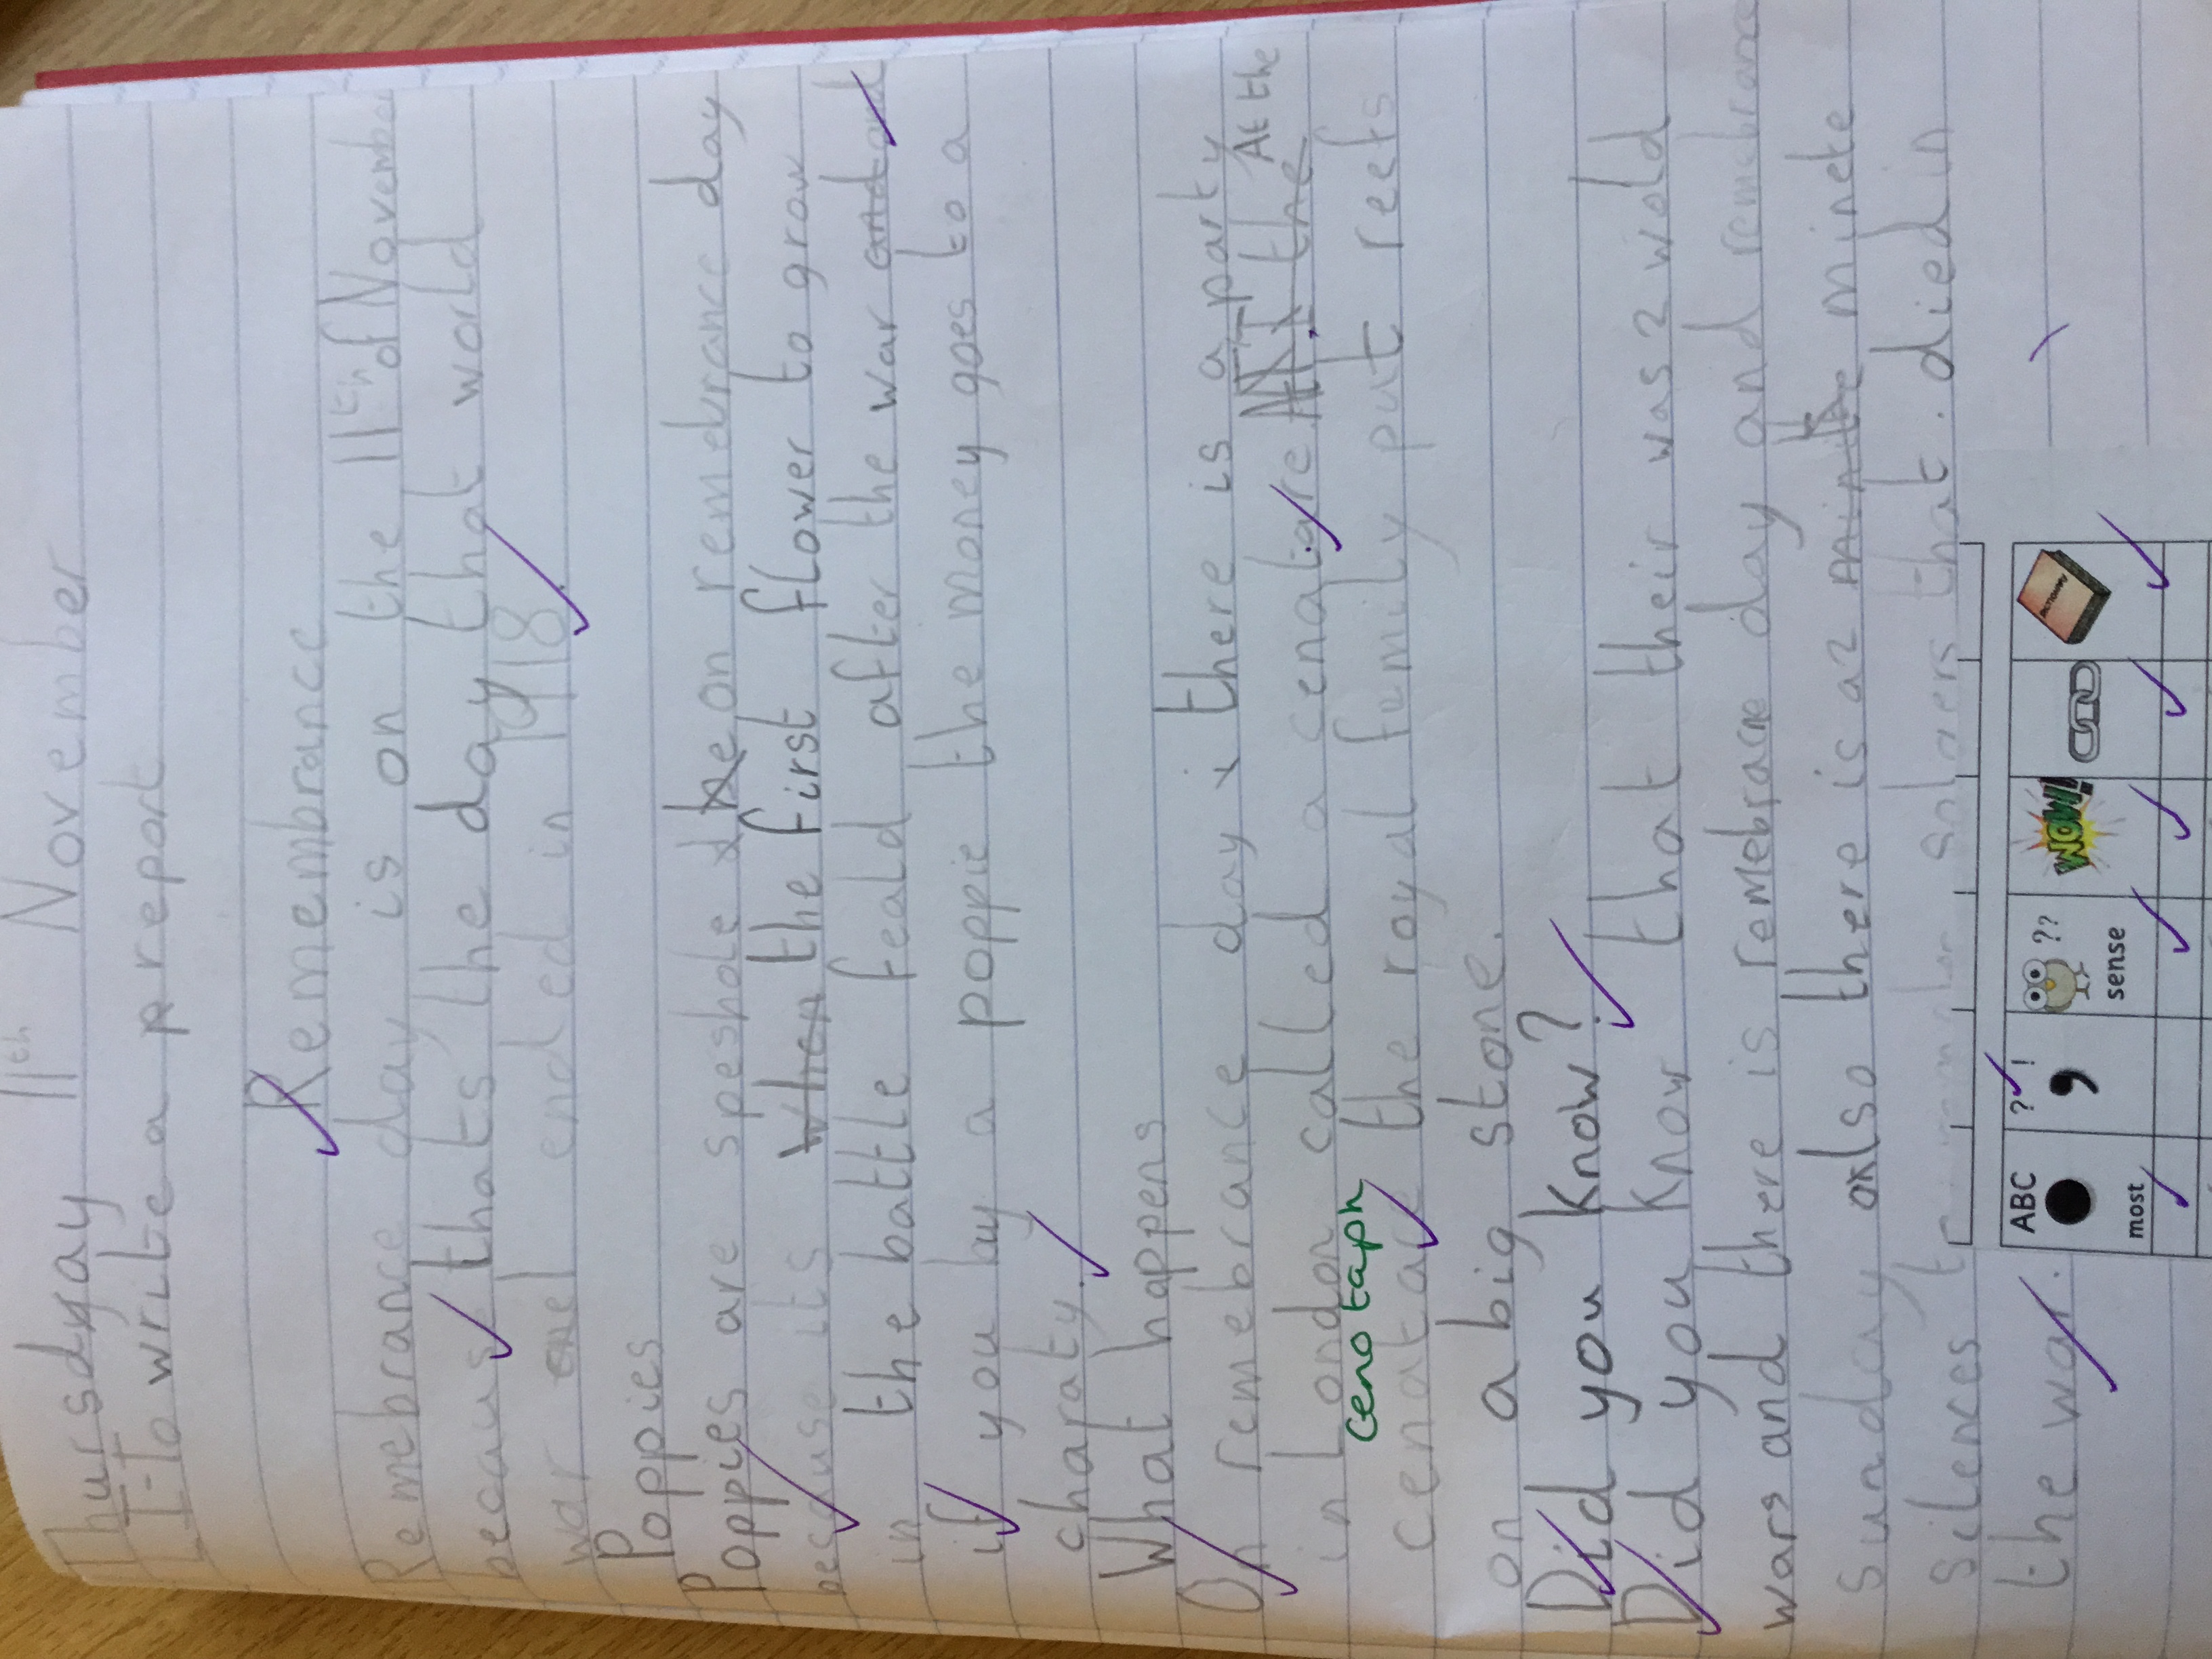 Thursday 11th November
L.I-To write a report
Remembrance
Remebrance day is on the 11th of November
becaus thats the day that world
war one ended in 1918.
Poppies
Poppies are speshole on remebrance day
because its when the first flower to grow
in the battle feald after the war and and
if you buy a poppie the money goes to a
charaty.
What happens
On remebrance day, there is a party
in London called a cenatare. At the At the
cenotaph
cenatare the royal family put reefs
on a big stone.
Did you know?
Did you know that their was 2 wold
wars and there is remebracne day and remebrance
sunday also there is a 2 minete
silences solders that. died in
the war.
ABC ? ! ?? WOW! DICTIONARY
most , sense